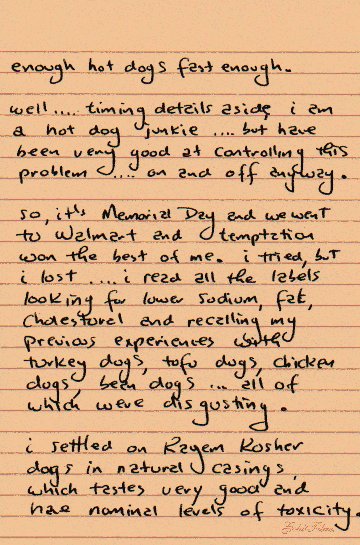 enough hot dogs fast enough.
well .... timing details aside, i am
a hot dog junkie .... but have
been very good at controlling this
problem .... on and off anyway.
so, it's Memorial Day and we went
to Walmart and temptation
won the best of me. i tried, but
i lost .... i read all the labels
looking for lower sodium, fat,
cholesterol and recalling my
previous experiences with
turkey dogs, tofu dogs, chicken
dogs, bean dogs ... all of
which were disgusting.
i settled on Kayem Kosher
dogs in natural casings
which tastes very good and
have nominal levels of toxicity.